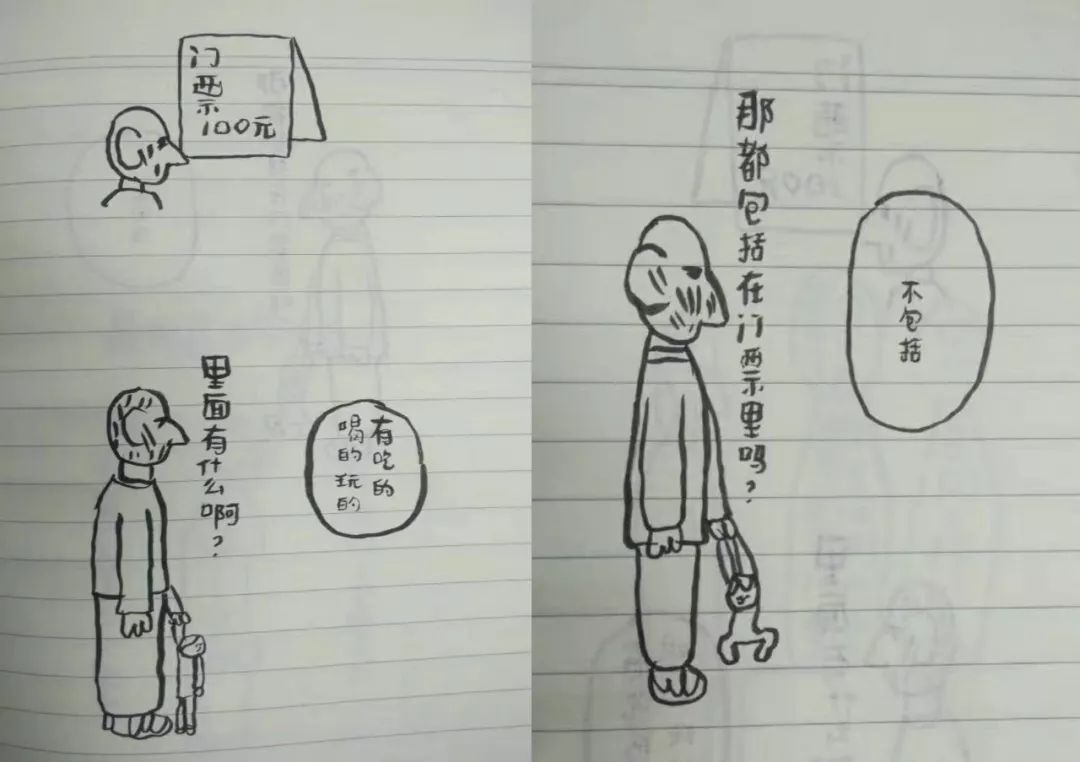 门
票
100元
里面有什么啊?
有吃的
喝的玩的
那都包括在门票里吗?
不包括